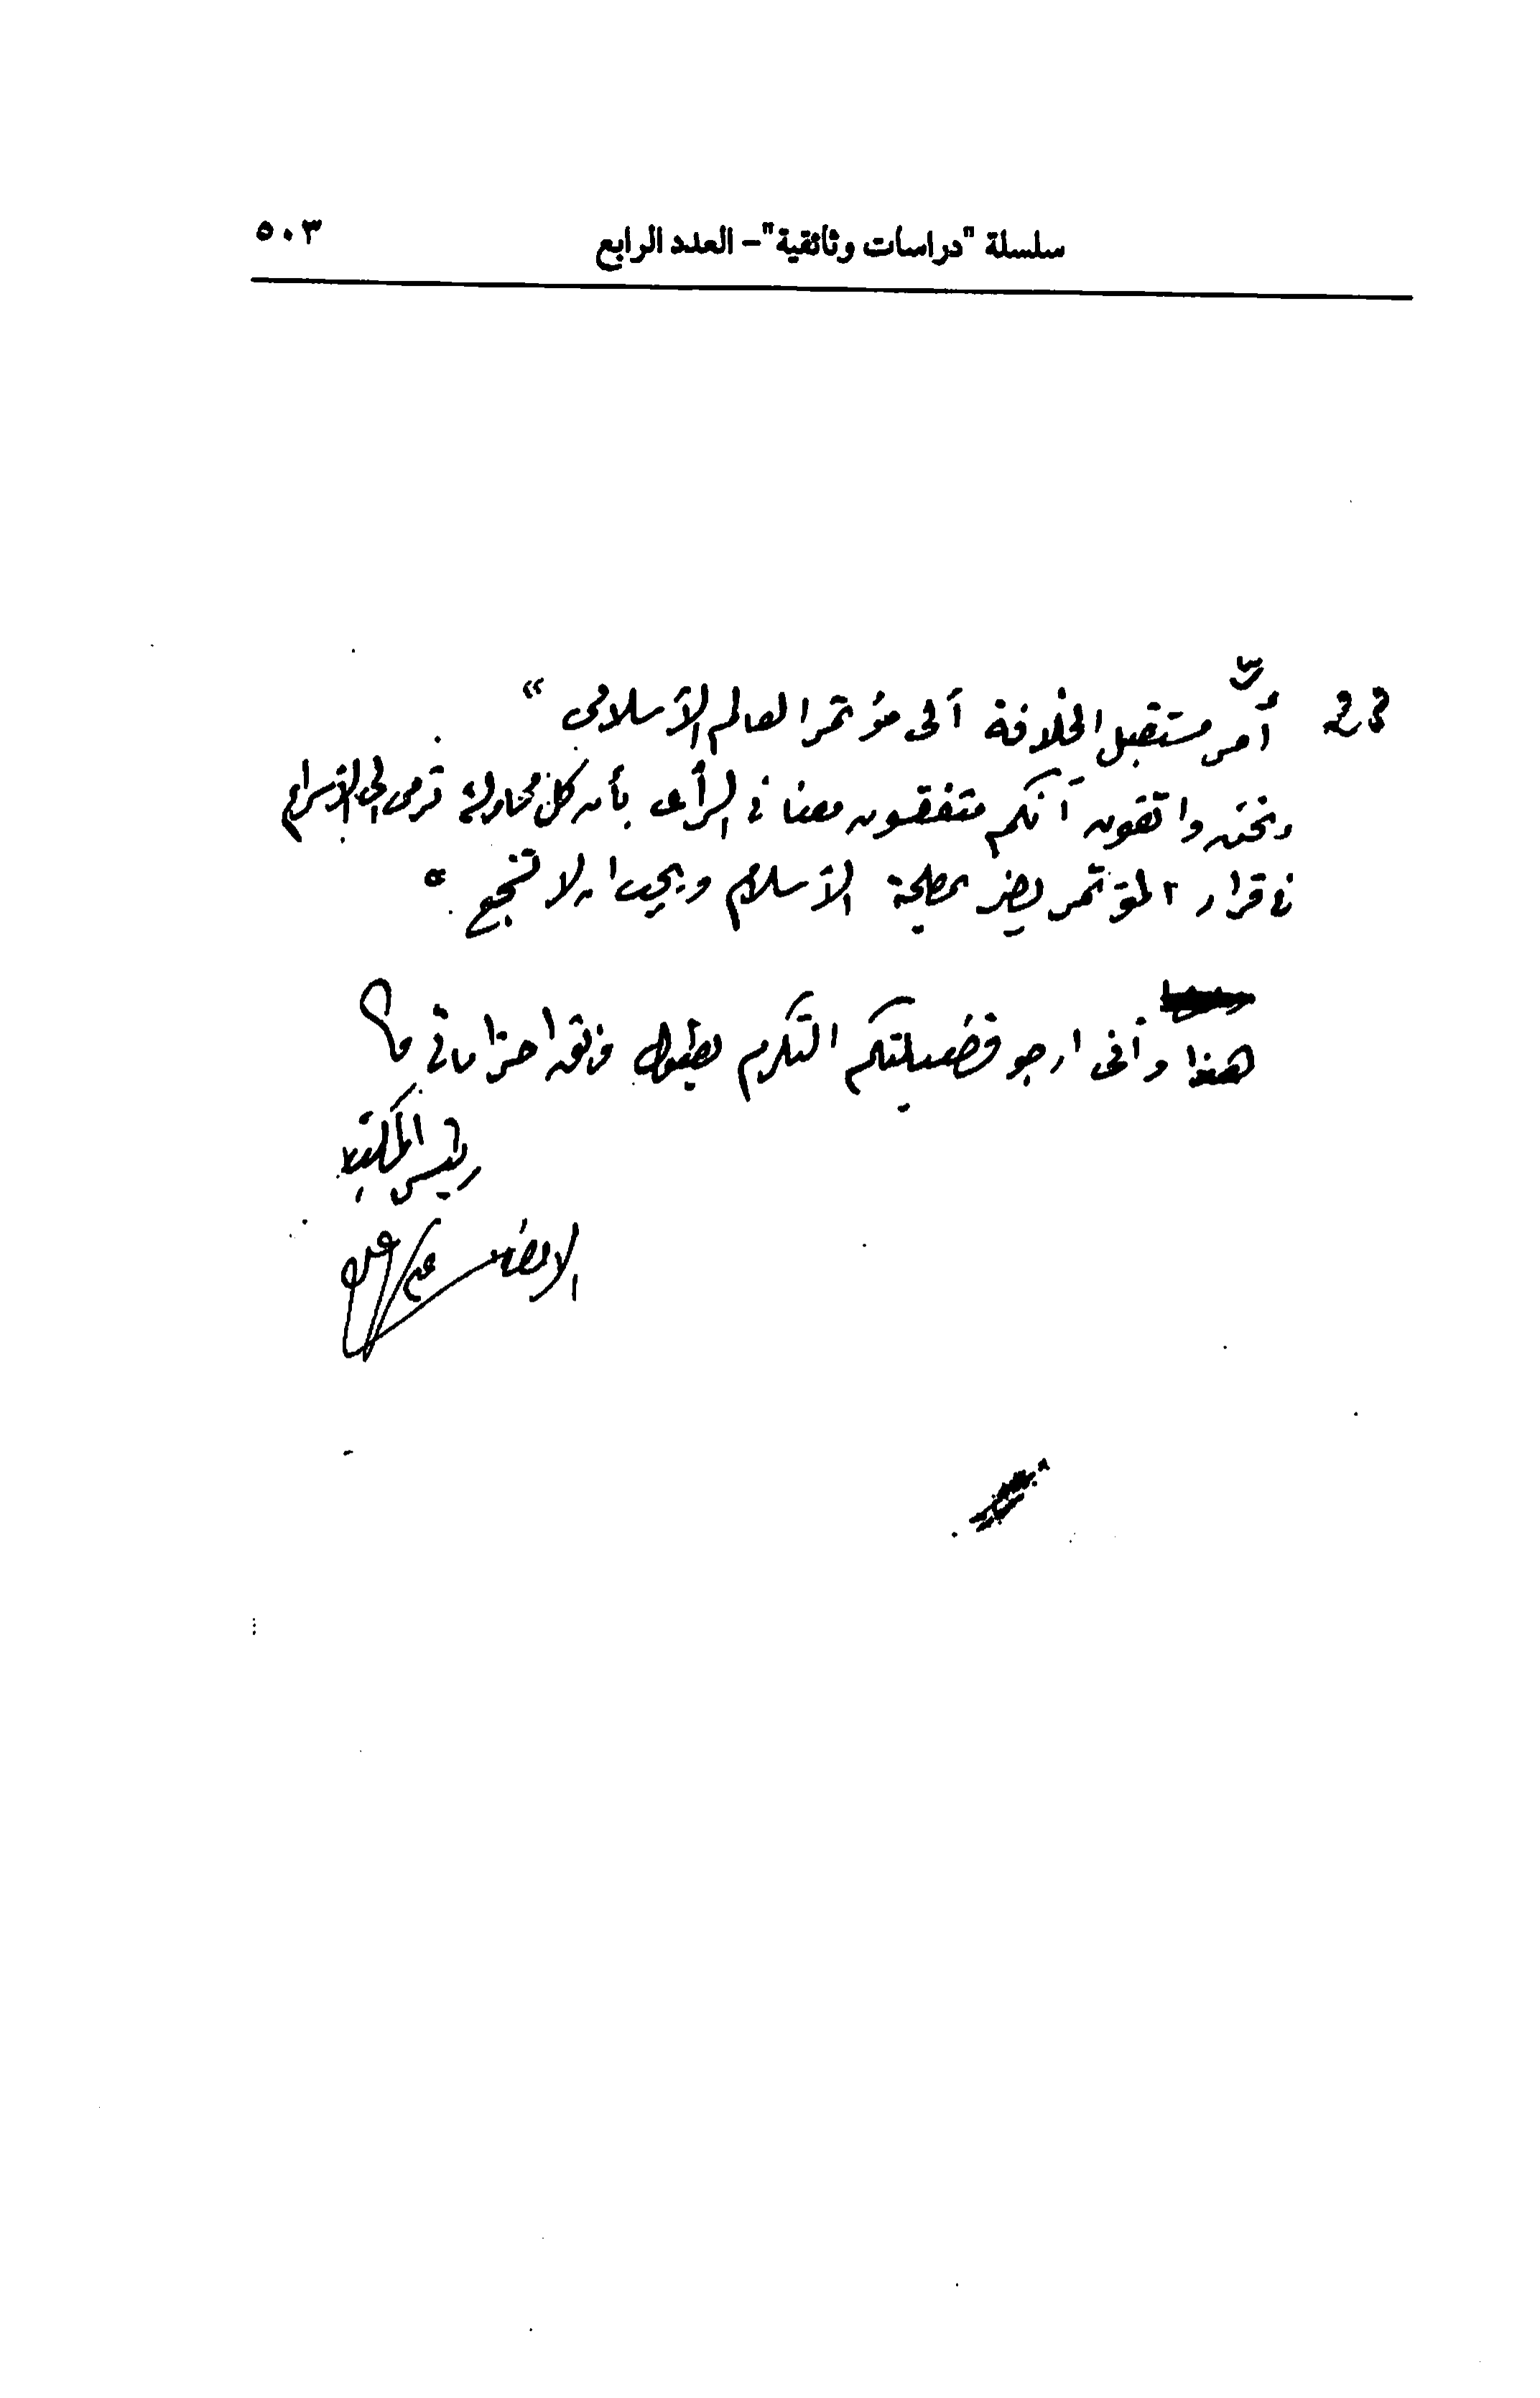 سلسلة "دراسات وثائقية" – العدد الرابع ٥٠٣
أمر مستقبل الخلافة ألى مؤتمر العالم الأسلامى "
ونحن واثقون أنكم متفقون معنا فى الرأى بأن كل محاولة ترمى الى الأسراع
فى قرار المؤتمر يضر بمصلحة الأسلام ويجب ان لا تشجع "
هذا وأنى ارجو فضيلتكم التكرم بقبول فائق احتراماتى
رئيس المكتب
الامضاء